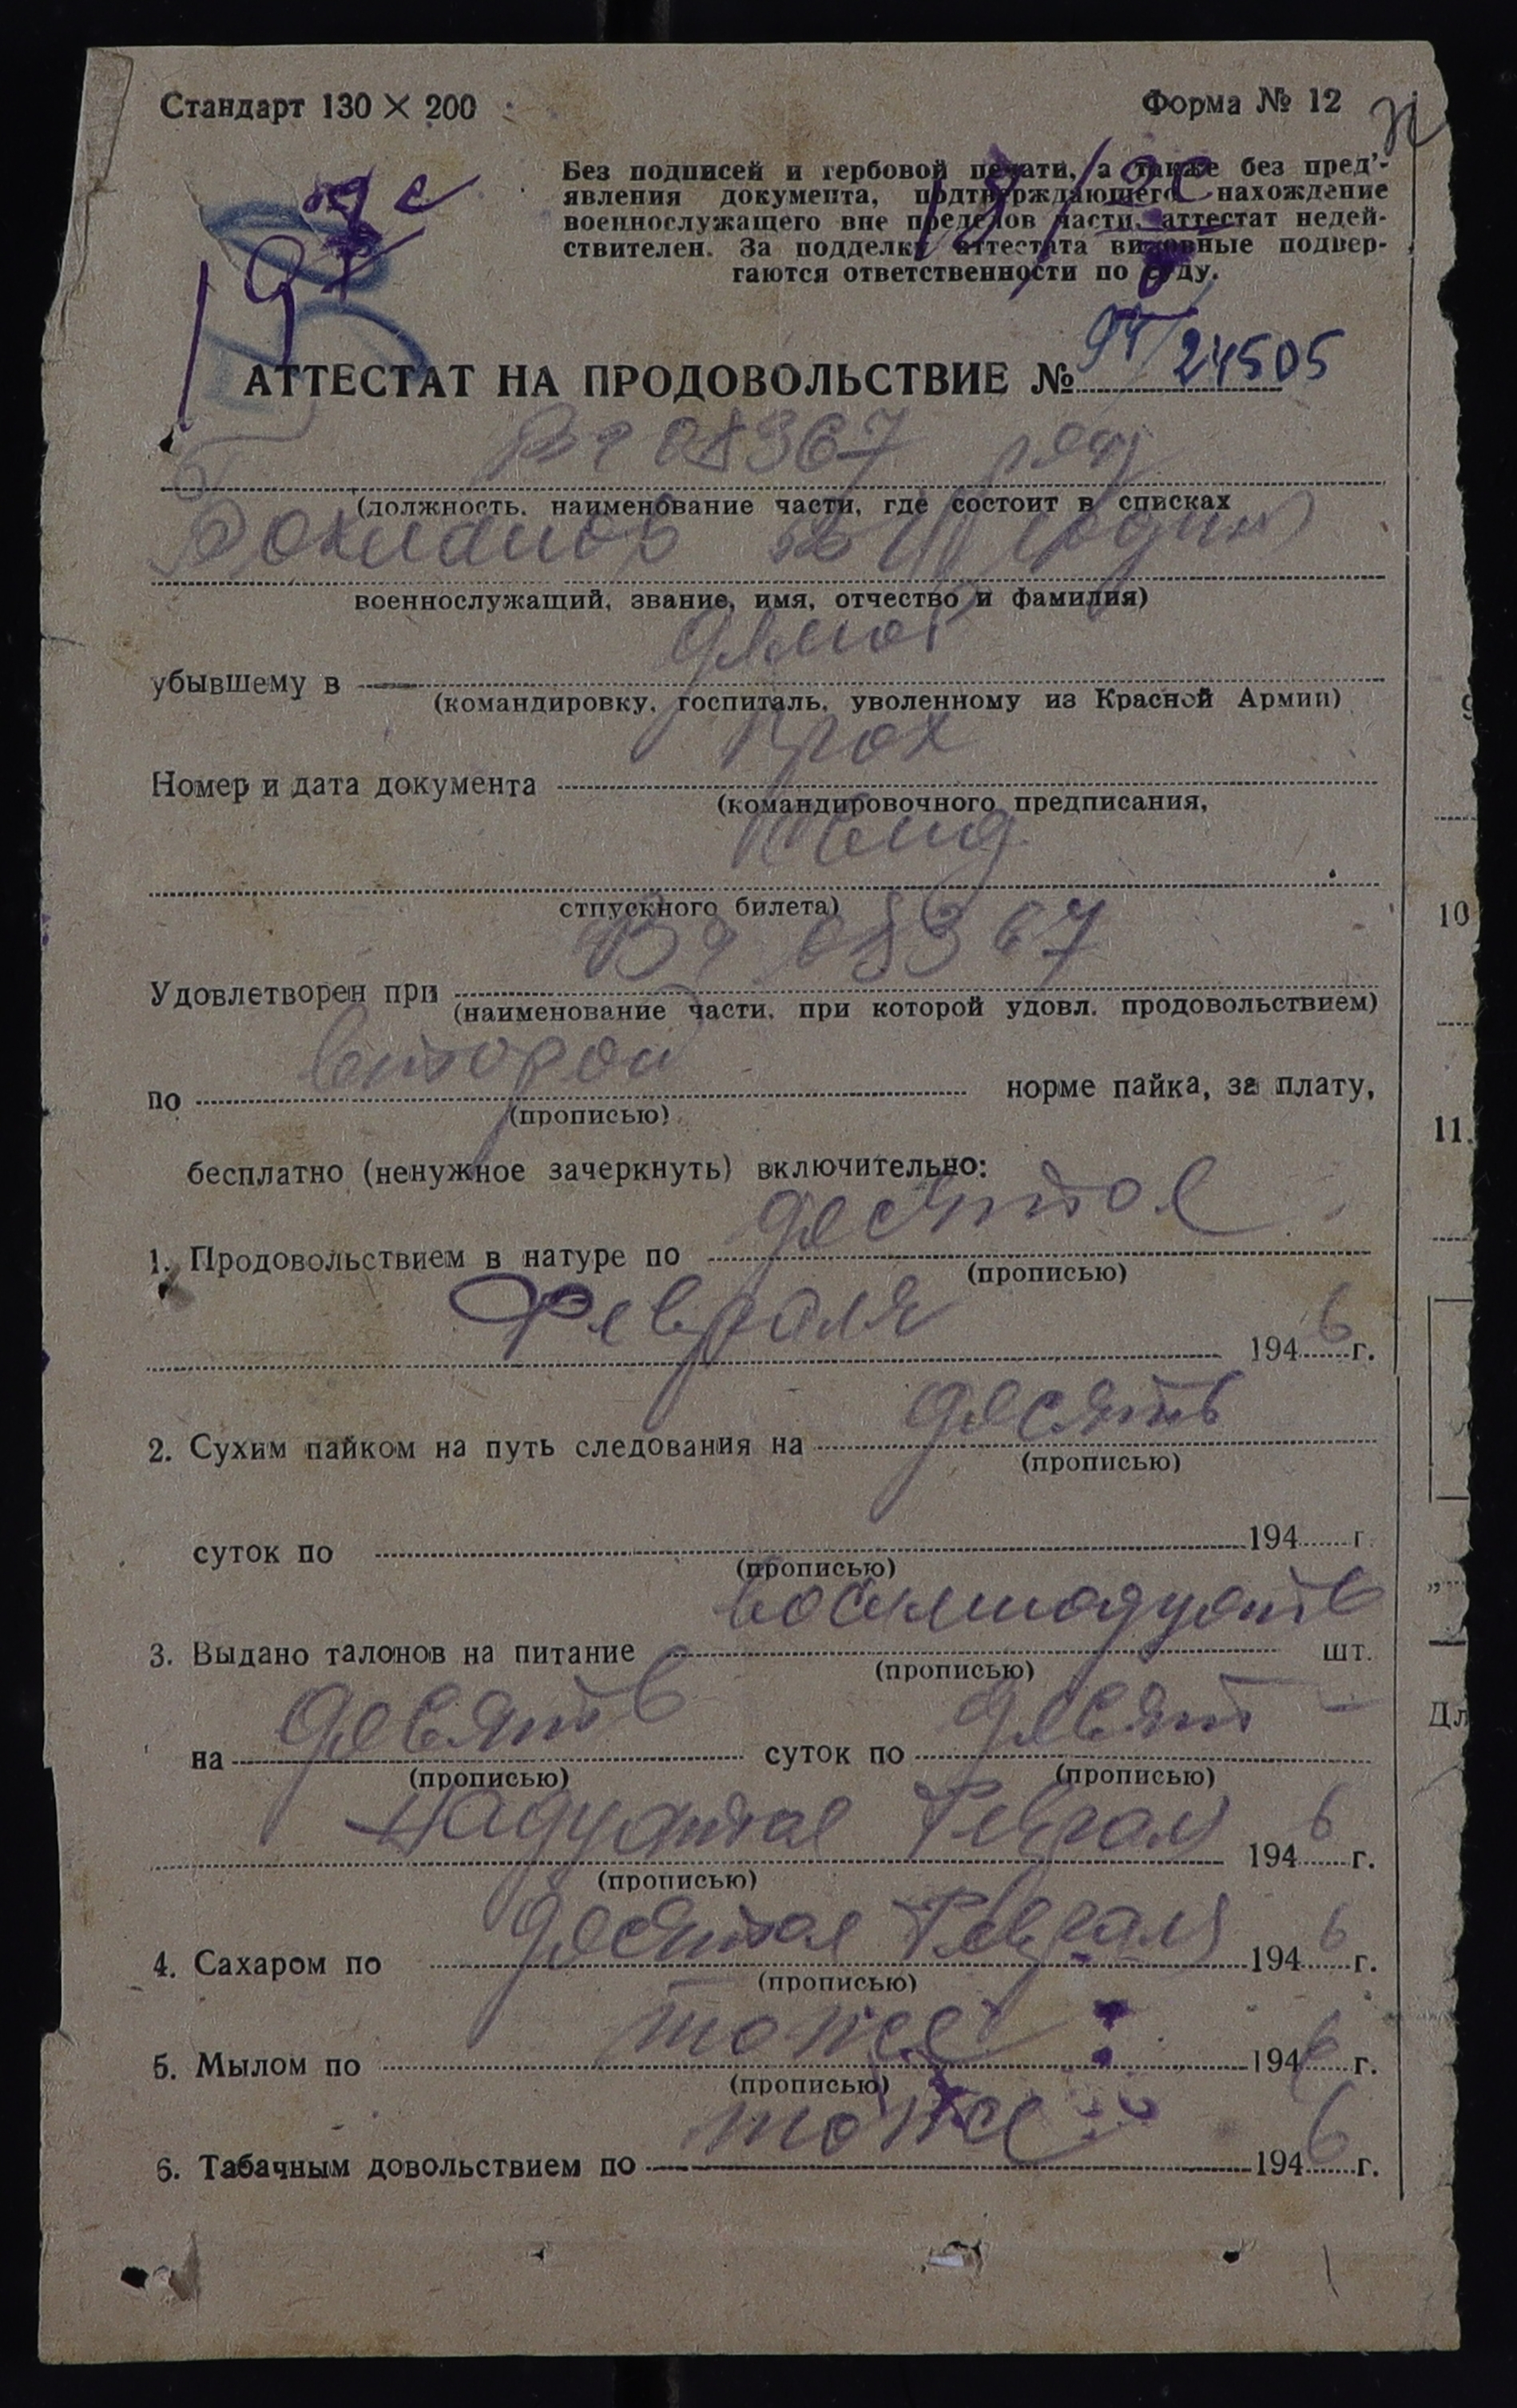 Стандарт 130 × 200
Форма № 12
Без подписей и гербовой печати, а также без пред'-
явления документа, подтверждающего нахождение
военнослужащего вне пределов части, аттестат недей-
ствителен. За подделку аттестата виновные подвер-
гаются ответственности по суду.
АТТЕСТАТ НА ПРОДОВОЛЬСТВИЕ № 94/24505
Вч 08367 ряд
(должность, наименование части, где состоит в списках
военнослужащий, звание, имя, отчество и фамилия)
убывшему в
(командировку, госпиталь, уволенному из Красной Армии)
Номер и дата документа
(командировочного предписания,
отпускного билета)
Удовлетворен при Вч 08367
(наименование части, при которой удовл. продовольствием)
по второй норме пайка, за плату,
(прописью)
бесплатно (ненужное зачеркнуть) включительно:
1. Продовольствием в натуре по десятое
(прописью)
Февраля 1946 г.
2. Сухим пайком на путь следования на десять
(прописью)
суток по 194 г.
(прописью)
3. Выдано талонов на питание восемнадцать шт.
(прописью)
на девять суток по девят-
(прописью) (прописью)
надцатое Февраля 1946 г.
(прописью)
4. Сахаром по десятое Февраля 1946 г.
(прописью)
5. Мылом по тоже 1946 г.
(прописью)
6. Табачным довольствием по тоже 1946 г.
10
11.
Дл